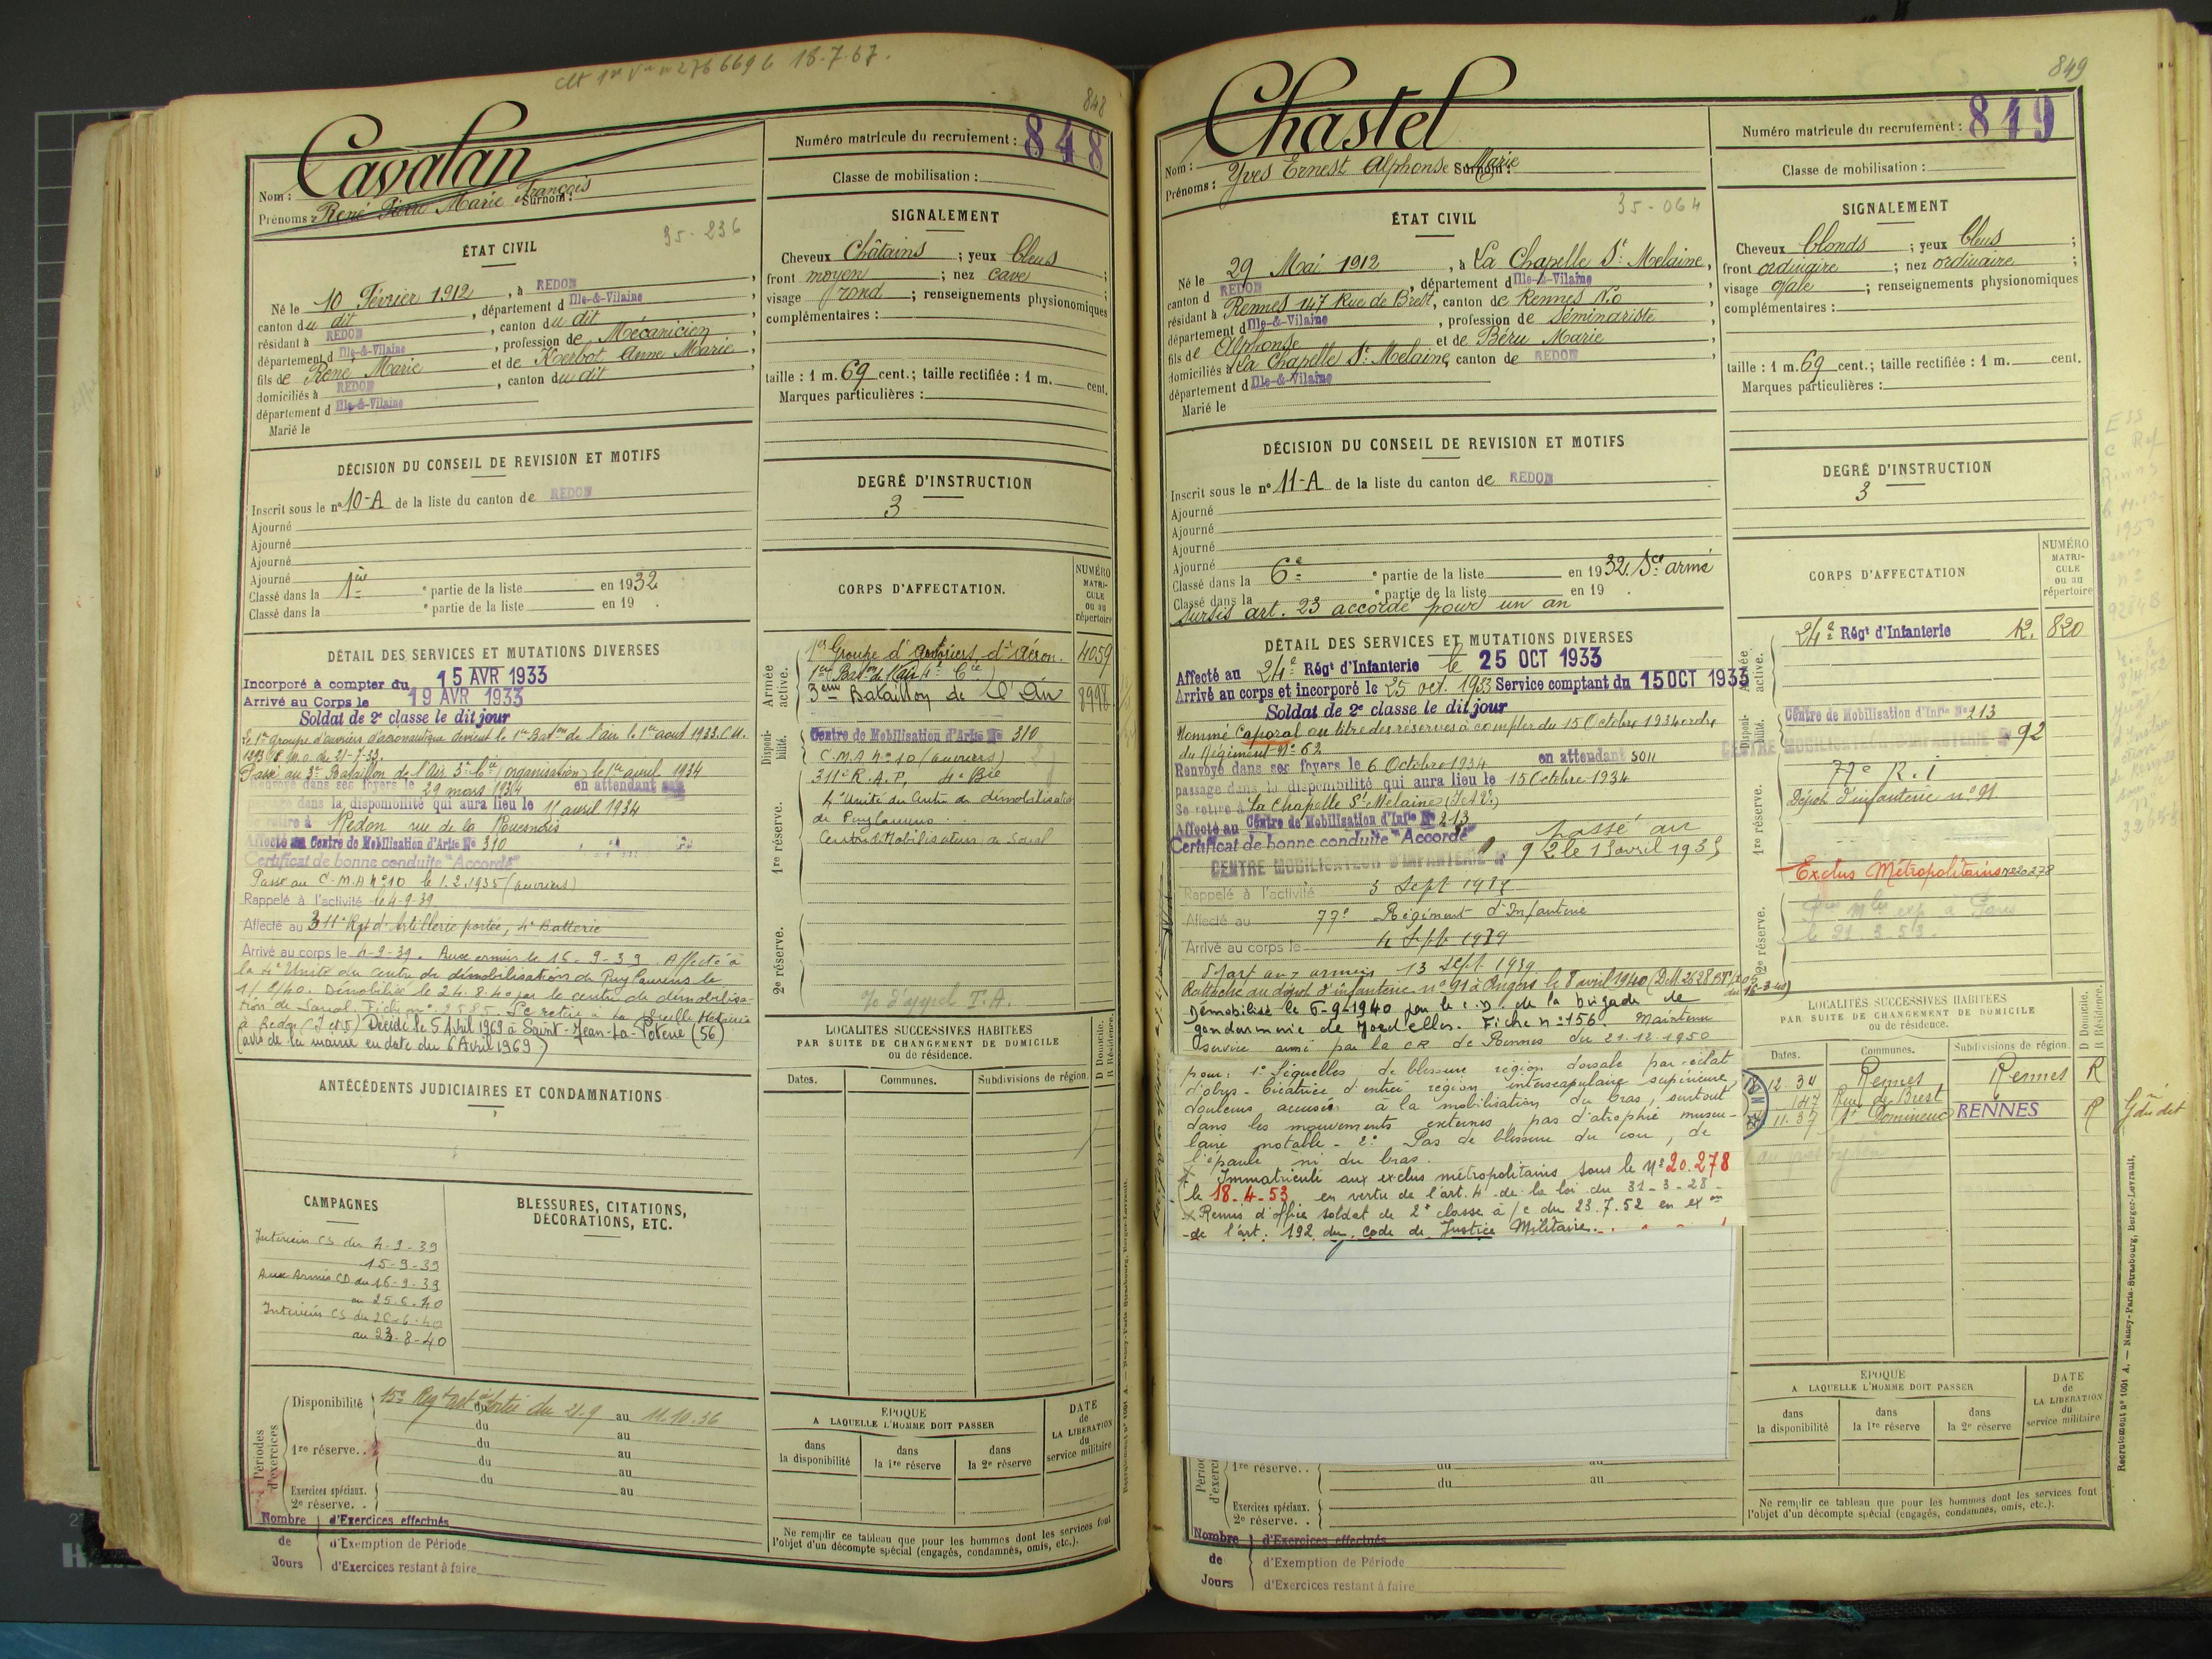 848
Cavalan
Nom :
Prénoms : René Pierre Marie François Surnom :
Numéro matricule du recrutement : 848
Classe de mobilisation :
ÉTAT CIVIL
35-236
Né le 10 Février 1912, à REDON,
canton du dit, département d Ille-&-Vilaine,
résidant à REDON, canton du dit,
département d Ille-&-Vilaine, profession de Mécanicien,
fils de René Marie et de Kerbot Anne Marie,
domiciliés à REDON, canton du dit,
département d Ille-&-Vilaine
Marié le
SIGNALEMENT
Cheveux Châtains ; yeux bleus ;
front moyen ; nez cave ;
visage rond ; renseignements physionomiques
complémentaires :
taille : 1 m. 69 cent.; taille rectifiée : 1 m. cent.
Marques particulières :
DÉCISION DU CONSEIL DE REVISION ET MOTIFS
Inscrit sous le n° 10-A de la liste du canton de REDON
Ajourné
Ajourné
Ajourné
Ajourné
Classé dans la 1ère partie de la liste en 1932
Classé dans la partie de la liste en 19 .
DEGRÉ D'INSTRUCTION
3
DÉTAIL DES SERVICES ET MUTATIONS DIVERSES
Incorporé à compter du 15 AVR 1933
Arrivé au Corps le 19 AVR 1933
Soldat de 2e classe le dit jour
Le 1er Groupe d'ouvriers d'aéronautique devient le 1er Baton de l'air le 1er aout 1933. C.M.
Passé au 3e Bataillon de l'Air 3e Cie (organisation) le 1er avril 1934
Renvoyé dans ses foyers le 29 mars 1934 en attendant son
passage dans la disponibilité qui aura lieu le 11 avril 1934
Se retire à Redon rue de la
Affecté au Centre de Mobilisation d'Artie No 310
Certificat de bonne conduite "Accordé"
Passé au C.M.A n°10 le 1.2.1935 (ouvriers)
Rappelé à l'activité le 4-9-39
Affecté au 311e Rgt d'Artillerie portée, 4e Batterie
Arrivé au corps le 4-9-39. Aux armées le 16-9-39. Affecté à
la 4e Unité du centre de démobilisation de Puylaurens le
Démobilisé le 24.8.40 par le centre de démobilisa-
tion de
à Redon (I et V) Décédé le 5 Avril 1969 à Saint-Jean-La-Poterie (56)
(avis de la mairie en date du 6 Avril 1969)
CORPS D'AFFECTATION.
NUMÉRO MATRI-CULE ou au répertoire
Armée active.
1er Groupe d'ouvriers d'aéron. 4059
3ème Bataillon de l'Air 8998
Disponi-bilité.
Centre de Mobilisation d'Artie No 310
C.M.A n°10 (ouvriers)
1re réserve.
311e R.A.P. 4e Bie
4e Unité du Centre de démobilisation
de Puylaurens
2e réserve.
ANTÉCÉDENTS JUDICIAIRES ET CONDAMNATIONS
LOCALITÉS SUCCESSIVES HABITÉES
PAR SUITE DE CHANGEMENT DE DOMICILE
ou de résidence.
Dates. Communes. Subdivisions de région. D Domicile. R Résidence.
CAMPAGNES
Intérieur CS du 4-9-39
15-9-39
Aux Armées CD du 16-9-39
au 25-6-40
Intérieur CS du 26-6-40
au 23-8-40
BLESSURES, CITATIONS,
DÉCORATIONS, ETC.
Périodes d'exercices
Disponibilité du 21.9 au 11.10.36
du au
1re réserve. . du au
du au
du au
Exercices spéciaux. au
2e réserve. .
Nombre de Jours
d'Exercices effectués
d'Exemption de Période
d'Exercices restant à faire
ÉPOQUE
A LAQUELLE L'HOMME DOIT PASSER
DATE de LA LIBÉRATION du service militaire
dans la disponibilité
dans la 1re réserve
dans la 2e réserve
Ne remplir ce tableau que pour les hommes dont les services font
l'objet d'un décompte spécial (engagés, condamnés, omis, etc.).
849
Chastel
Nom :
Prénoms : Yves Ernest Alphonse Marie Surnom :
Numéro matricule du recrutement : 849
Classe de mobilisation :
ÉTAT CIVIL
35-064
Né le 29 Mai 1912, à La Chapelle St Melaine,
canton d REDON, département d Ille-&-Vilaine,
résidant à Rennes 147 Rue de Brest, canton de Rennes N.O
département d Ille-&-Vilaine, profession de Séminariste,
fils de Alphonse et de Béru Marie,
domiciliés à La Chapelle St Melaine, canton de REDON,
département d Ille-&-Vilaine
Marié le
SIGNALEMENT
Cheveux blonds ; yeux bleus ;
front ordinaire ; nez ordinaire ;
visage ovale ; renseignements physionomiques
complémentaires :
taille : 1 m. 69 cent.; taille rectifiée : 1 m. cent.
Marques particulières :
DÉCISION DU CONSEIL DE REVISION ET MOTIFS
Inscrit sous le n° 11-A de la liste du canton de REDON
Ajourné
Ajourné
Ajourné
Ajourné
Classé dans la 6e partie de la liste en 1932 Sce armé
Classé dans la partie de la liste en 19 .
Sursis art. 23 accordé pour un an
DEGRÉ D'INSTRUCTION
3
DÉTAIL DES SERVICES ET MUTATIONS DIVERSES
Affecté au 24e Régt d'Infanterie le 25 OCT 1933
Arrivé au corps et incorporé le 25 oct. 1933 Service comptant du 15 OCT 1933
Soldat de 2e classe le dit jour
Nommé Caporal au titre des réserves à compter du 15 Octobre 1934 ordre
du Régiment N° 62
Renvoyé dans ses foyers le 6 Octobre 1934 en attendant son
passage dans la disponibilité qui aura lieu le 15 Octobre 1934
Se retire à La Chapelle St Melaine (I et V.)
Affecté au Centre de Mobilisation d'Infie No 213
Certificat de bonne conduite "Accordé" Passé au
CENTRE MOBILISATEUR D'INFANTERIE No 92 le 15 avril 1935
Rappelé à l'activité 3 Sept 1939
Affecté au 77e Régiment d'Infanterie
Arrivé au corps le 4 Sept 1939
Départ aux armées 13 Sept 1939
Rattaché au dépôt d'infanterie n° 91 à Angers le 8 avril 1940
Démobilisé le 6-9-1940 par le C.D. de la brigade de
gendarmerie de . Fiche n° 156. Maintenu
service armé par la CR de Rennes du 21.12.1950
pour : 1° Séquelles de blessure région dorsale par éclat
d'obus - Cicatrice d'entrée région interscapulaire supérieure,
douleurs accusées à la mobilisation du bras, surtout
dans les mouvements externes, pas d'atrophie muscu-
laire notable - 2° Pas de blessure du cou, de
l'épaule ni du bras.
Immatriculé aux exclus métropolitains sous le N° 20.278
le 18-4-53 en vertu de l'art. 4 de la loi du 31-3-28-
Remis d'office soldat de 2e classe à /c du 23.7.52 en exon
de l'art. 192 du Code de Justice Militaire.
CORPS D'AFFECTATION
NUMÉRO MATRI-CULE ou au répertoire
Armée active.
24e Régt d'Infanterie R. 820
Disponi-bilité.
Centre de Mobilisation d'Infie No 213
CENTRE MOBILISATEUR D'INFANTERIE No 92
1re réserve.
77e R.I
Dépôt d'infanterie n° 91
Exclus Métropolitains N°20278
2e réserve.
le 21.3.53.
LOCALITÉS SUCCESSIVES HABITÉES
PAR SUITE DE CHANGEMENT DE DOMICILE
ou de résidence.
Dates. Communes. Subdivisions de région. D Domicile. R Résidence.
12-34 Rennes Rennes R
147 Rue de Brest
11.37 St Domineuc RENNES R
au presbytère
1re réserve. . du au
du au
Exercices spéciaux.
2e réserve. .
Nombre de Jours
d'Exercices effectués
d'Exemption de Période
d'Exercices restant à faire
ÉPOQUE
A LAQUELLE L'HOMME DOIT PASSER
DATE de LA LIBÉRATION du service militaire
dans la disponibilité
dans la 1re réserve
dans la 2e réserve
Ne remplir ce tableau que pour les hommes dont les services font
l'objet d'un décompte spécial (engagés, condamnés, omis, etc.).
Recrutement n° 1001 A. — Nancy-Paris-Strasbourg, Berger-Levrault.